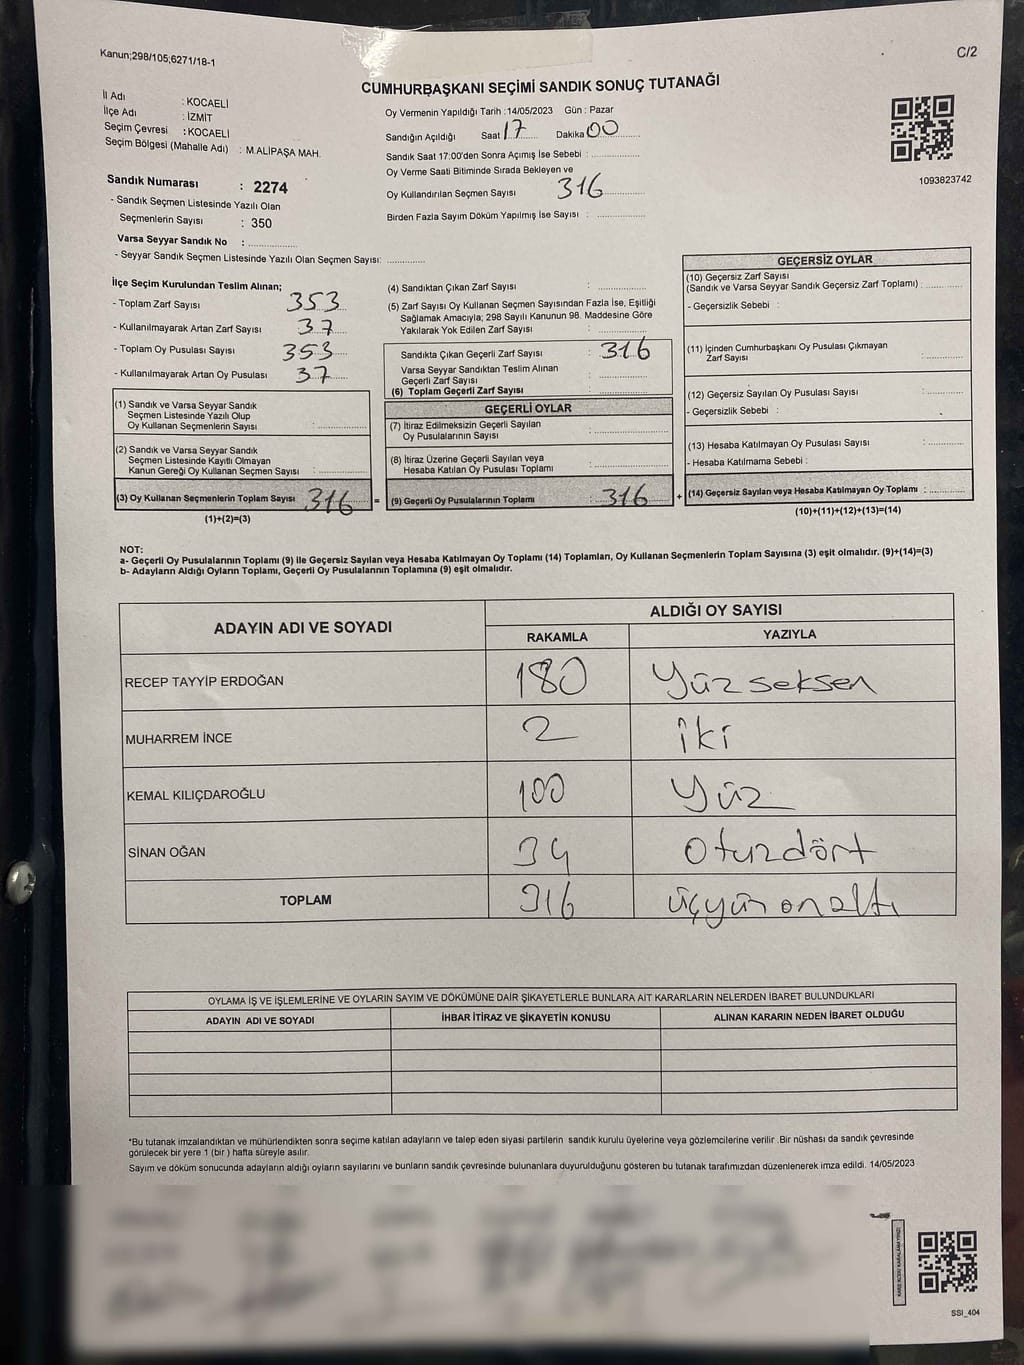 Kanun;298/105;6271/18-1
C/2
CUMHURBAŞKANI SEÇİMİ SANDIK SONUÇ TUTANAĞI
İl Adı : KOCAELİ
İlçe Adı : İZMİT
Seçim Çevresi : KOCAELİ
Seçim Bölgesi (Mahalle Adı) : M.ALİPAŞA MAH.
Oy Vermenin Yapıldığı Tarih :14/05/2023 Gün : Pazar
Sandığın Açıldığı Saat 17 Dakika 00
Sandık Saat 17:00'den Sonra Açımış İse Sebebi :
Oy Verme Saati Bitiminde Sırada Bekleyen ve
Oy Kullandırılan Seçmen Sayısı 316
Birden Fazla Sayım Döküm Yapılmış İse Sayısı :
1093823742
Sandık Numarası : 2274
- Sandık Seçmen Listesinde Yazılı Olan
Seçmenlerin Sayısı : 350
Varsa Seyyar Sandık No :
- Seyyar Sandık Seçmen Listesinde Yazılı Olan Seçmen Sayısı:
İlçe Seçim Kurulundan Teslim Alınan;
- Toplam Zarf Sayısı 353
- Kullanılmayarak Artan Zarf Sayısı 37
- Toplam Oy Pusulası Sayısı 353
- Kullanılmayarak Artan Oy Pusulası 37
(1) Sandık ve Varsa Seyyar Sandık
Seçmen Listesinde Yazılı Olup
Oy Kullanan Seçmenlerin Sayısı :
(2) Sandık ve Varsa Seyyar Sandık
Seçmen Listesinde Kayıtlı Olmayan
Kanun Gereği Oy Kullanan Seçmen Sayısı :
(3) Oy Kullanan Seçmenlerin Toplam Sayısı 316 =
(1)+(2)=(3)
(4) Sandıktan Çıkan Zarf Sayısı :
(5) Zarf Sayısı Oy Kullanan Seçmen Sayısından Fazla İse, Eşitliği
Sağlamak Amacıyla; 298 Sayılı Kanunun 98. Maddesine Göre
Yakılarak Yok Edilen Zarf Sayısı :
Sandıkta Çıkan Geçerli Zarf Sayısı : 316
Varsa Seyyar Sandıktan Teslim Alınan
Geçerli Zarf Sayısı :
(6) Toplam Geçerli Zarf Sayısı :
GEÇERLİ OYLAR
(7) İtiraz Edilmeksizin Geçerli Sayılan
Oy Pusulalarının Sayısı :
(8) İtiraz Üzerine Geçerli Sayılan veya
Hesaba Katılan Oy Pusulası Toplamı :
(9) Geçerli Oy Pusulalarının Toplamı : 316 +
GEÇERSİZ OYLAR
(10) Geçersiz Zarf Sayısı
(Sandık ve Varsa Seyyar Sandık Geçersiz Zarf Toplamı) :
- Geçersizlik Sebebi :
(11) İçinden Cumhurbaşkanı Oy Pusulası Çıkmayan
Zarf Sayısı :
(12) Geçersiz Sayılan Oy Pusulası Sayısı :
- Geçersizlik Sebebi :
(13) Hesaba Katılmayan Oy Pusulası Sayısı :
- Hesaba Katılmama Sebebi :
(14) Geçersiz Sayılan veya Hesaba Katılmayan Oy Toplamı :
(10)+(11)+(12)+(13)=(14)
NOT:
a- Geçerli Oy Pusulalarının Toplamı (9) ile Geçersiz Sayılan veya Hesaba Katılmayan Oy Toplamı (14) Toplamları, Oy Kullanan Seçmenlerin Toplam Sayısına (3) eşit olmalıdır. (9)+(14)=(3)
b- Adayların Aldığı Oyların Toplamı, Geçerli Oy Pusulalarının Toplamına (9) eşit olmalıdır.
ADAYIN ADI VE SOYADI ALDIĞI OY SAYISI
RAKAMLA YAZIYLA
RECEP TAYYİP ERDOĞAN 180 Yüz seksen
MUHARREM İNCE 2 iki
KEMAL KILIÇDAROĞLU 100 Yüz
SİNAN OĞAN 34 Otuzdört
TOPLAM 316 üçyüz onaltı
OYLAMA İŞ VE İŞLEMLERİNE VE OYLARIN SAYIM VE DÖKÜMÜNE DAİR ŞİKAYETLERLE BUNLARA AİT KARARLARIN NELERDEN İBARET BULUNDUKLARI
ADAYIN ADI VE SOYADI İHBAR İTİRAZ VE ŞİKAYETİN KONUSU ALINAN KARARIN NEDEN İBARET OLDUĞU
*Bu tutanak imzalandıktan ve mühürlendikten sonra seçime katılan adayların ve talep eden siyasi partilerin sandık kurulu üyelerine veya gözlemcilerine verilir .Bir nüshası da sandık çevresinde
görülecek bir yere 1 (bir ) hafta süreyle asılır.
Sayım ve döküm sonucunda adayların aldığı oyların sayılarını ve bunların sandık çevresinde bulunanlara duyurulduğunu gösteren bu tutanak tarafımızdan düzenlenerek imza edildi. 14/05/2023
SSI_404